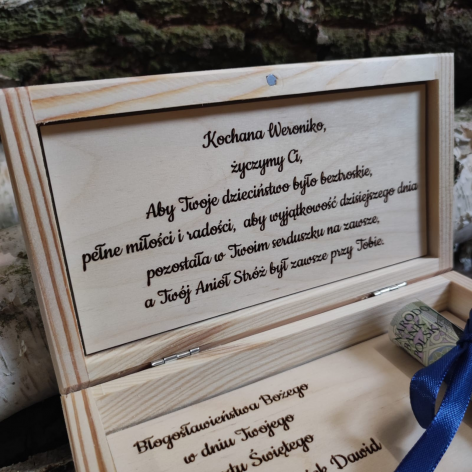 Kochana Weroniko,
życzymy Ci,
Aby Twoje dzieciństwo było beztroskie,
pełne miłości i radości, aby wyjątkowość dzisiejszego dnia
pozostała w Twoim serduszku na zawsze,
a Twój Anioł Stróż był zawsze przy Tobie.
Błogosławieństwa Bożego
w dniu Twojego
Świętego
Dawid